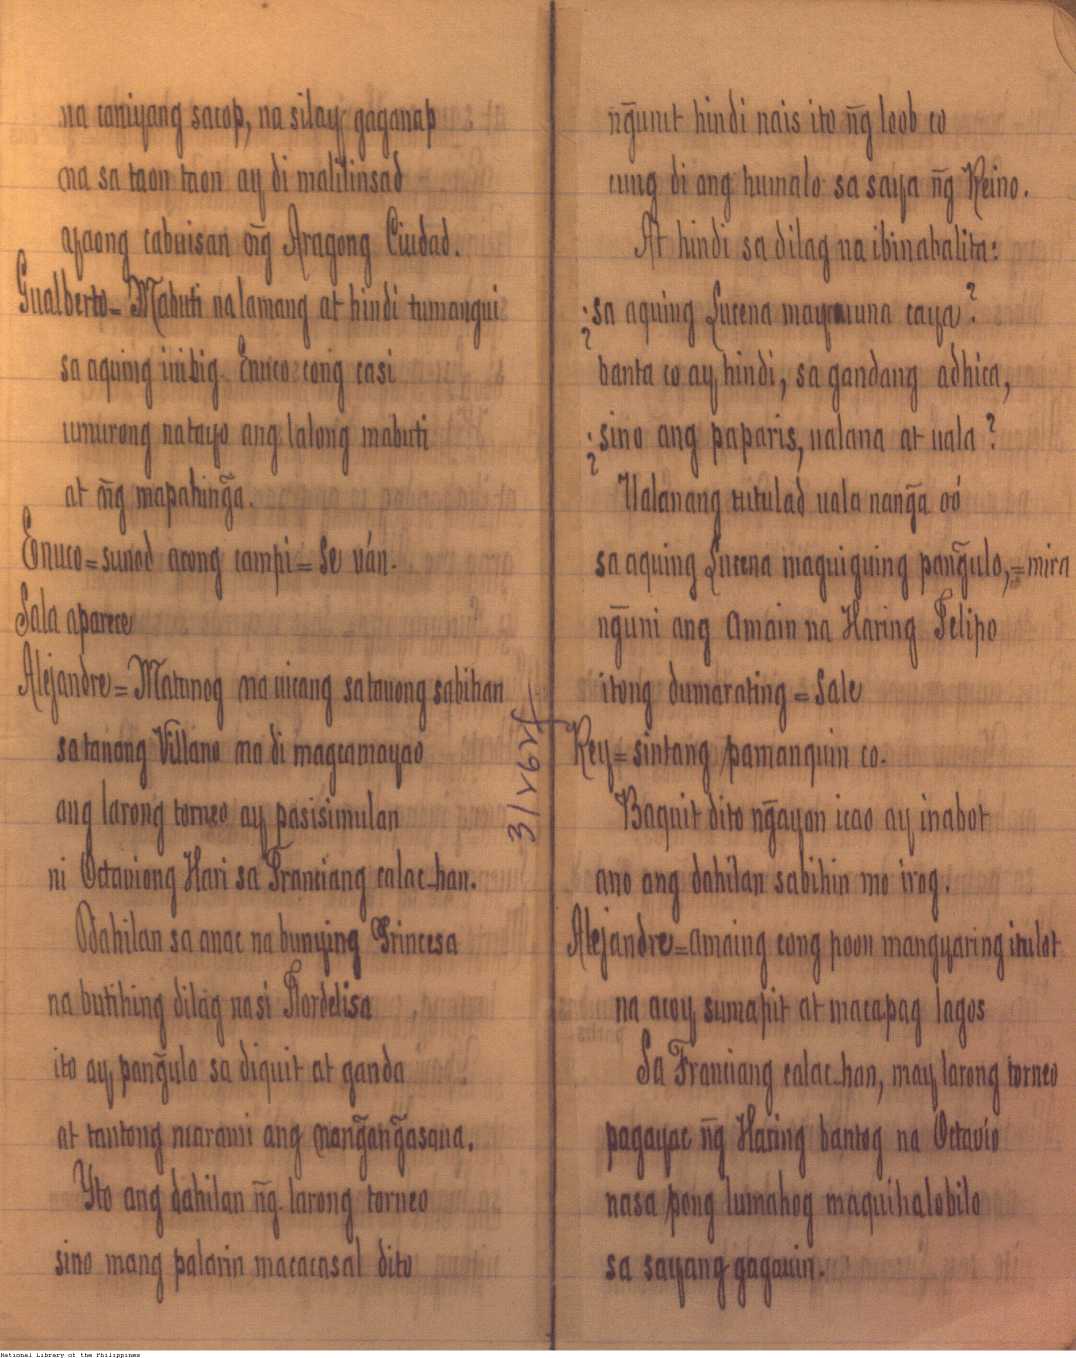 na caniyang sacop, na silay gaganap
na sa taon taon ay di malilinsad
ayaong cabuisan n͠g Aragong Ciudad.
Gualberto = Mabuti na lamang at hindi tumangui
sa aquing iniibig. Enuco cong casi
umurong natayo ang lalong mabuti
at n͠g mapahing̃a.
Enuco = sunod acong campi = Se ván.
Sala aparece
Alejandre = Matunog na uicang sa tauong sabihan
sa tanang Villano na di magcamayao
ang larong torneo ay pasisimulan
ni Octaviong Hari sa Franciang calac-han.
Odahilan sa anac na bunying Princesa
na butihing dilág na si Flordelisa
ito ay pang̃ulo sa diquit at ganda
at tantong marami ang nang̃ang̃asaua.
Yto ang dahilan n͠g larong torneo
sino mang palarin macacasal dito
31/262
n͠gunit hindi náis ito n͠g loob co
cung di ang humalo sa saya n͠g Reino.
At hindi sa dilag na ibinabalita:
¿sa aquing Lucena mayroruna caya?
banta co ay hindi, sa gandang adhica,
¿sino ang paparis, ualana at uala?
Ualanang tutulad uala nang̃a oó
sa aquing Lucena maguiguing pang̃ulo, = mira
n͠guni ang amain na Haring Felipo
itong dumarating = Sale
Rey = sintang pamanquin co.
Baquit dito n͠gayon icao ay inabot
ano ang dahilan sabihin mo irog.
Alejandre = amaing cong poon mangyaring itulot
na acoy sumapit at macapag lagos
Sa Franciang calac-han, may larong torneo
pagayac n͠g Haring bantog na Octavio
nasa pong lumahog maquihalobilo
sa sayang gagauin.
National Library of the Philippines